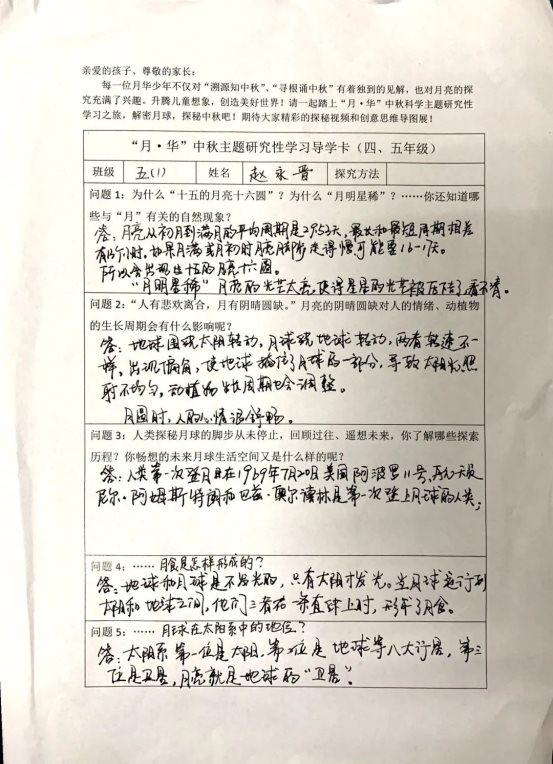 亲爱的孩子、尊敬的家长：
每一位月华少年不仅对“溯源知中秋”、“寻根诵中秋”有着独到的见解，也对月亮的探
究充满了兴趣。升腾儿童想象，创造美好世界！请一起踏上“月·华”中秋科学主题研究性
学习之旅，解密月球，探秘中秋吧！期待大家精彩的探秘视频和创意思维导图展！
“月·华”中秋主题研究性学习导学卡（四、五年级）
班级 五(1) 姓名 赵永晋 探究方法
问题 1：为什么“十五的月亮十六圆”？为什么“月明星稀”？……你还知道哪
些与“月”有关的自然现象？
答：月亮从初月到满月的平均周期是29.53天，最长和最短周期相差
有13小时，如果月满或月初时月亮脚步走得慢可能要16-17天。
所以会出现十五的月亮十六圆。
“月明星稀”月亮的光芒太亮，使得星星的光芒被压下去了看不清。
问题 2：“人有悲欢离合，月有阴晴圆缺。”月亮的阴晴圆缺对人的情绪、动植物
的生长周期会有什么影响呢？
答：地球围绕太阳转动，月球绕地球转动，两者转速不一
样，出现偏角，使地球挡住了月球的一部分，导致太阳光照
射不均匀，动植物生长周期也会调整。
月圆时，人的心情很舒畅。
问题 3：人类探秘月球的脚步从未停止，回顾过往、遥想未来，你了解哪些探索
历程？你畅想的未来月球生活空间又是什么样的呢？
答：人类第一次登月是在1969年7月20日美国阿波罗11号，航天员
尼尔·阿姆斯特朗和巴兹·奥尔德林是第一次登上月球的人类；
问题 4：…… 月食是怎样形成的？
答：地球和月球是不发光的，只有太阳才发光。当月球运行到
太阳和地球之间，他们三者在一条直线上时，形成了月食。
问题 5：…… 月球在太阳系中的地位？
答：太阳系第一位是太阳，第二位是地球等八大行星，第三
位是卫星，月亮就是地球的“卫星”。